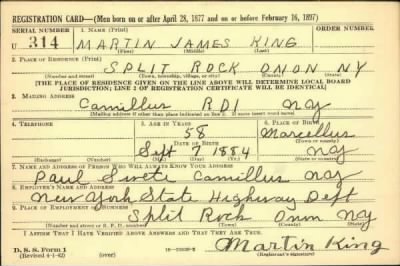 REGISTRATION CARD—(Men born on or after April 28, 1877 and on or before February 16, 1897)
SERIAL NUMBER 1. NAME (Print)
U 314 MARTIN JAMES KING
(First) (Middle) (Last)
2. PLACE OF RESIDENCE (Print)
SPLIT ROCK ONON NY
(Number and street) (Town, township, village, or city) (County) (State)
[THE PLACE OF RESIDENCE GIVEN ON THE LINE ABOVE WILL DETERMINE LOCAL BOARD
JURISDICTION; LINE 2 OF REGISTRATION CERTIFICATE WILL BE IDENTICAL]
3. MAILING ADDRESS
Camillus RD1 NY
[Mailing address if other than place indicated on line 2. If same insert word same]
4. TELEPHONE 5. AGE IN YEARS 6. PLACE OF BIRTH
58 Marcellus
DATE OF BIRTH (Town or county)
Sept 7 1884 NY
(Exchange) (Number) (Mo.) (Day) (Yr.) (State or country)
7. NAME AND ADDRESS OF PERSON WHO WILL ALWAYS KNOW YOUR ADDRESS
Paul Camillus NY
8. EMPLOYER'S NAME AND ADDRESS
New York State Highway Dept
9. PLACE OF EMPLOYMENT OR BUSINESS
Split Rock Onon NY
(Number and street or R. F. D. number) (Town) (County) (State)
I AFFIRM THAT I HAVE VERIFIED ABOVE ANSWERS AND THAT THEY ARE TRUE.
D. S. S. Form 1
(Revised 4-1-42) (over) Martin King
(Registrant's signature)